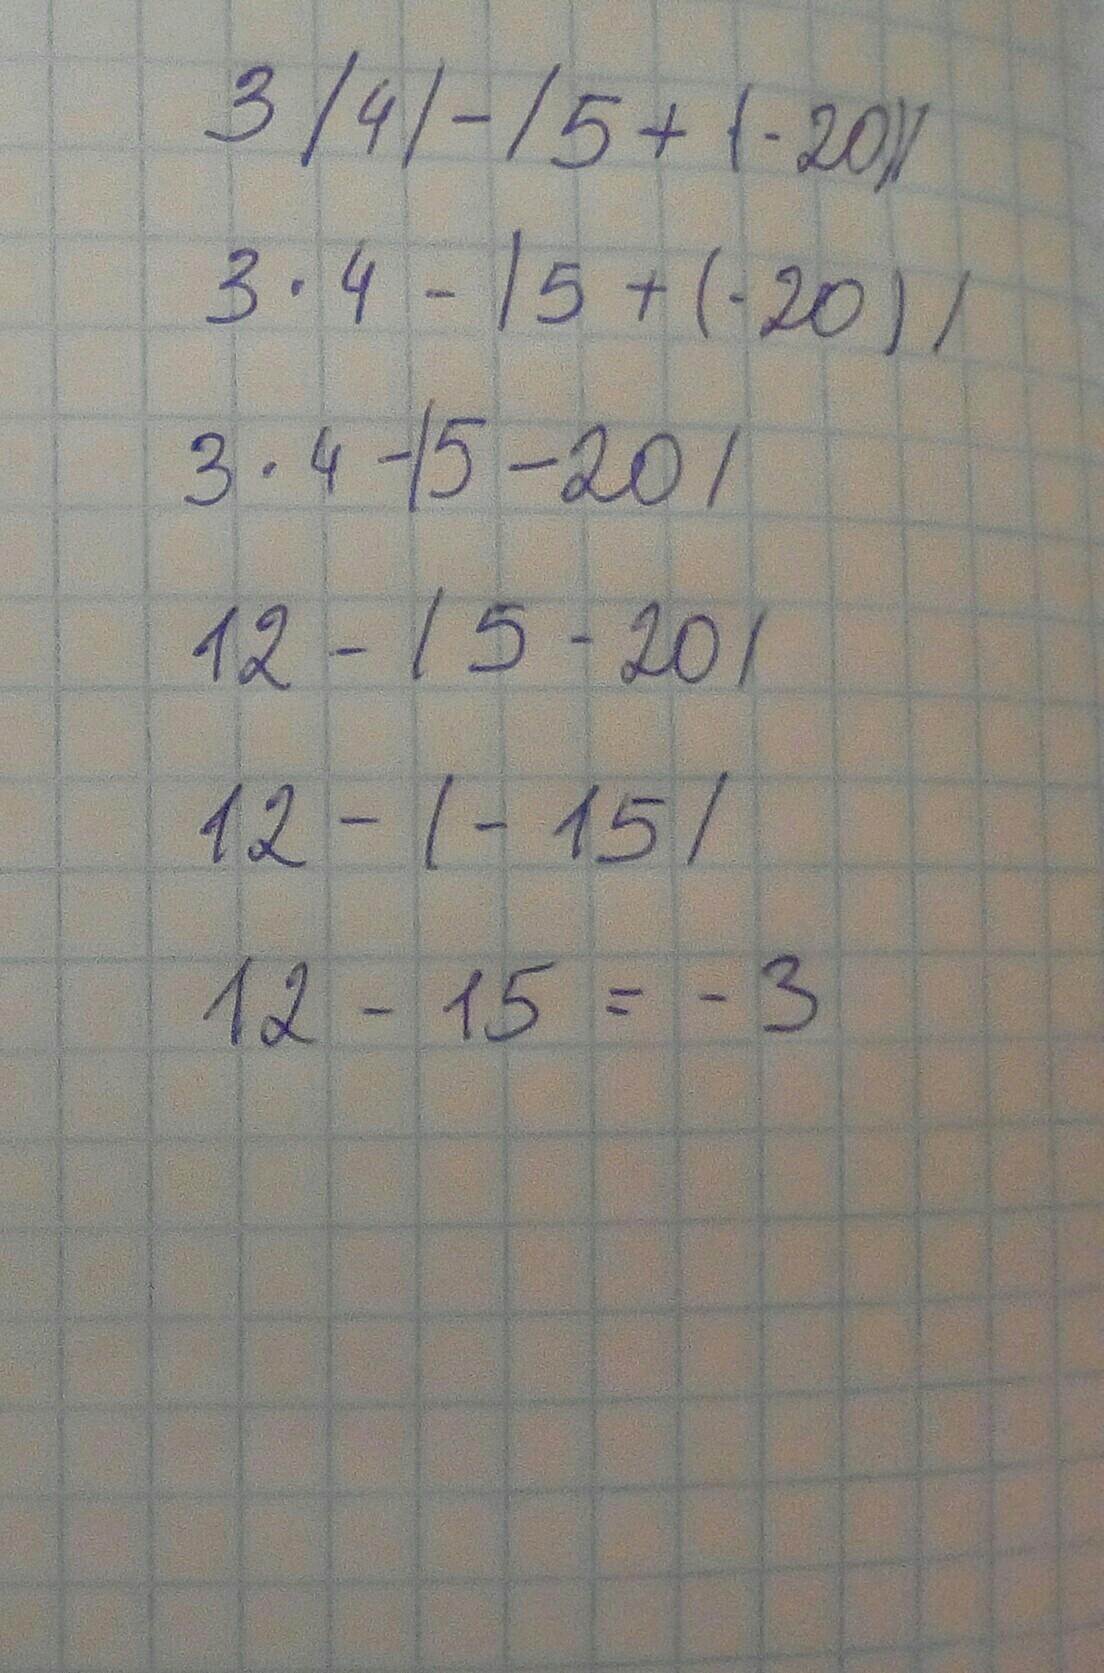 3 |4| - |5 + (-20)|
3 · 4 - |5 + (-20)|
3 · 4 - |5 - 20|
12 - |5 - 20|
12 - |- 15|
12 - 15 = - 3